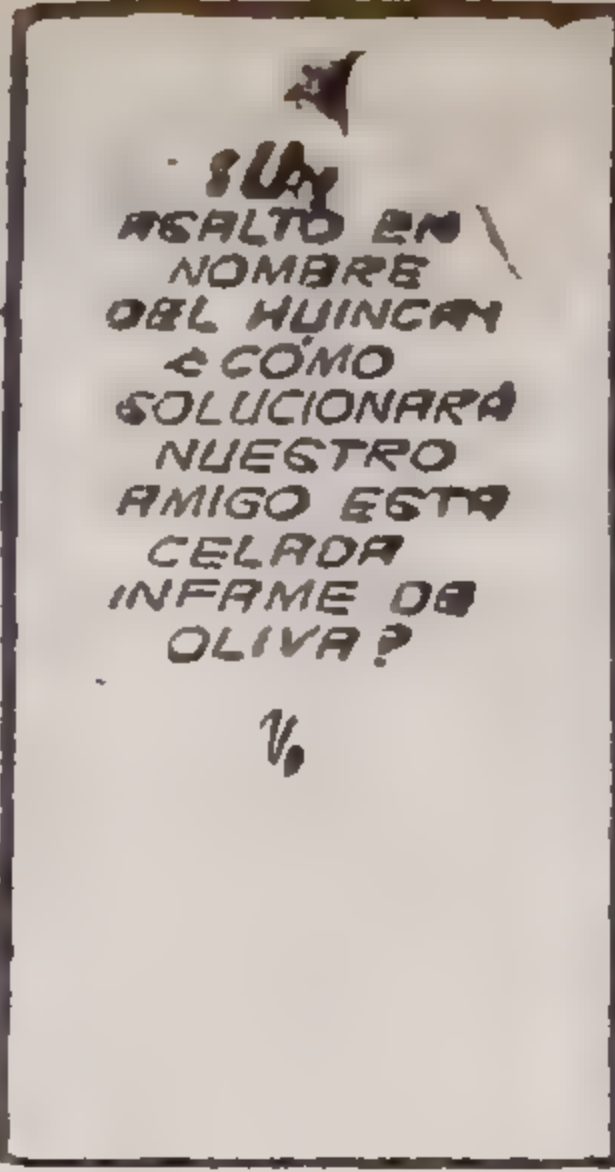 ¡UN
ASALTO EN
NOMBRE
DEL HUINCA!
¿CÓMO
SOLUCIONARÁ
NUESTRO
AMIGO ESTA
CELADA
INFAME DE
OLIVA?